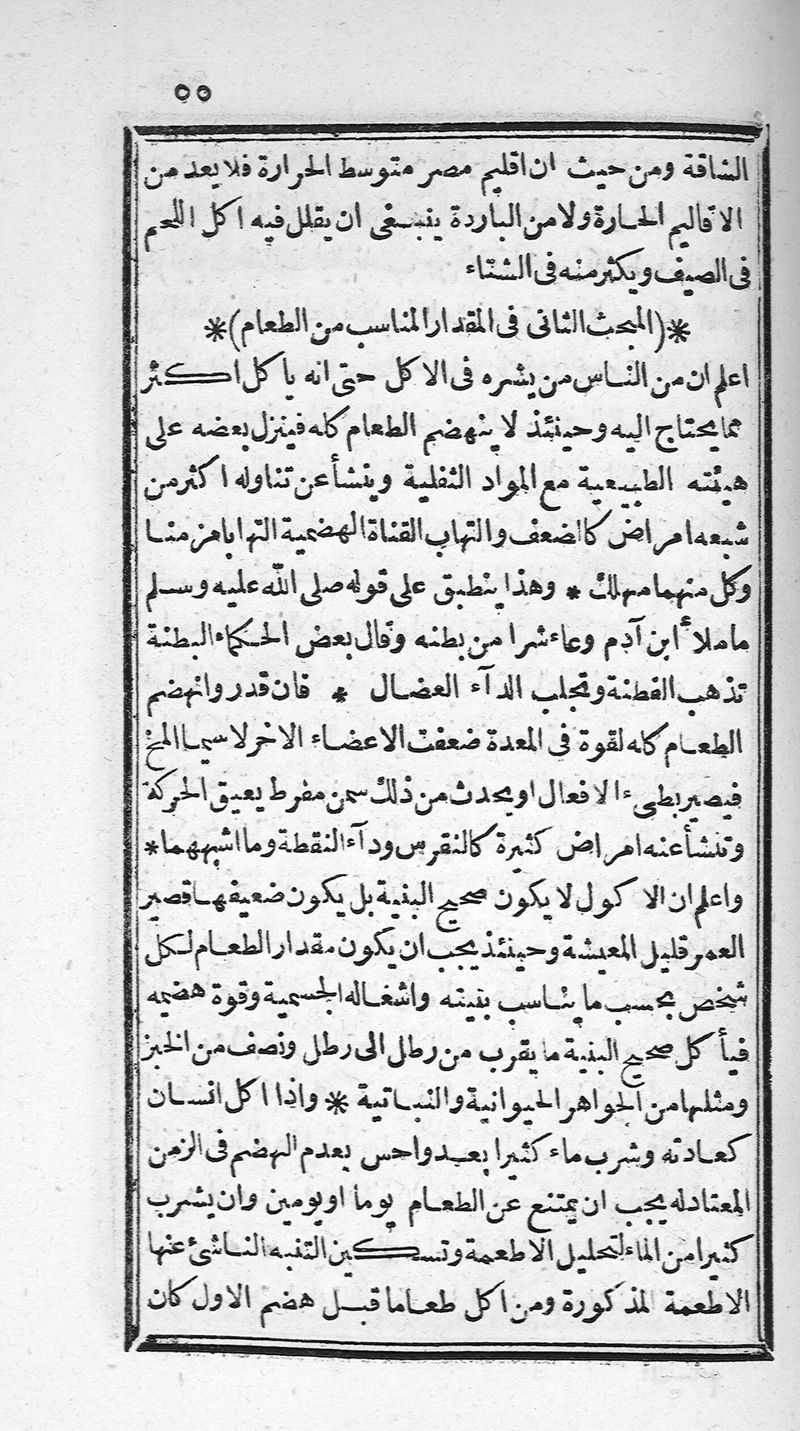 ٥٥
الشاقة ومن حيث ان اقليم مصر متوسط الحرارة فلا يعد من
الاقاليم الحارة ولا من الباردة ينبغى ان يقلل فيه اكل اللحم
فى الصيف ويكثر منه فى الشتاء
*(المبحث الثانى فى المقدار المناسب من الطعام)*
اعلم ان من الناس من يشره فى الاكل حتى انه ياكل اكثر
مما يحتاج اليه وحينئذ لا ينهضم الطعام كله فينزل بعضه على
هيئته الطبيعية مع المواد الثفلية وينشأ عن تناوله اكثر من
شبعه امراض كالضعف والتهاب القناة الهضمية التهابا مزمنا
وكل منهما مهلك * وهذا ينطبق على قوله صلى الله عليه وسلم
ما ملأ ابن آدم وعاء شرا من بطنه وقال بعض الحكماء البطنة
تذهب الفطنة وتجلب الدآء العضال * فان قدر وانهضم
الطعام كله لقوة فى المعدة ضعفت الاعضاء الاخر لا سيما المخ
فيصير بطىء الافعال او يحدث من ذلك سمن مفرط يعيق الحركة
وتنشأ عنه امراض كثيرة كالنقرس ودآء النقطة وما اشبههما *
واعلم ان الاكول لا يكون صحيح البنية بل يكون ضعيفها قصير
العمر قليل المعيشة وحينئذ يجب ان يكون مقدار الطعام لكل
شخص بحسب ما يناسب بنيته واشغاله الجسمية وقوة هضمه
فيأكل صحيح البنية ما يقرب من رطل الى رطل ونصف من الخبز
ومثلها من الجواهر الحيوانية والنباتية * واذا اكل انسان
كعادته وشرب ماء كثيرا بعد واحس بعدم الهضم فى الزمن
المعتاد له يجب ان يمتنع عن الطعام يوما او يومين وان يشرب
كثيرا من الماء لتحليل الاطعمة وتسكين التنبه الناشئ عنها
الاطعمة المذكورة ومن اكل طعاما قبل هضم الاول كان